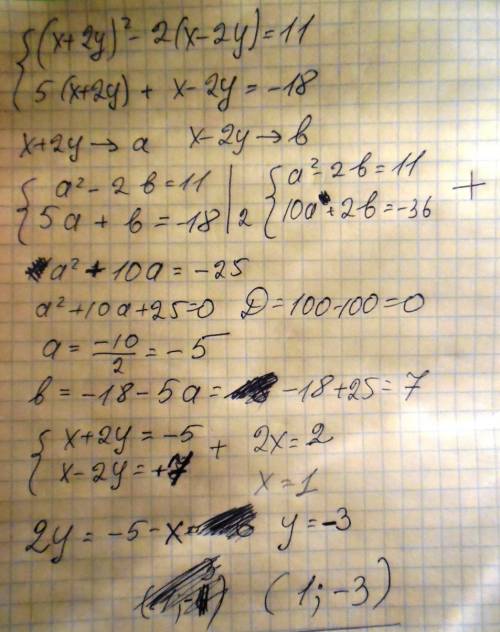 {(x+2y)²-2(x-2y)=11
5(x+2y)+ x-2y=-18
x+2y→a x-2y→b
{a²-2b=11 | {a²-2b=11 +
5a+b=-18 |2 10a+2b=-36
a²+10a=-25
a²+10a+25=0 D=100-100=0
a=-10/2=-5
b=-18-5a= -18+25=7
{x+2y=-5 + 2x=2
x-2y=+7 x=1
2y=-5-x y=-3
(1;-3)